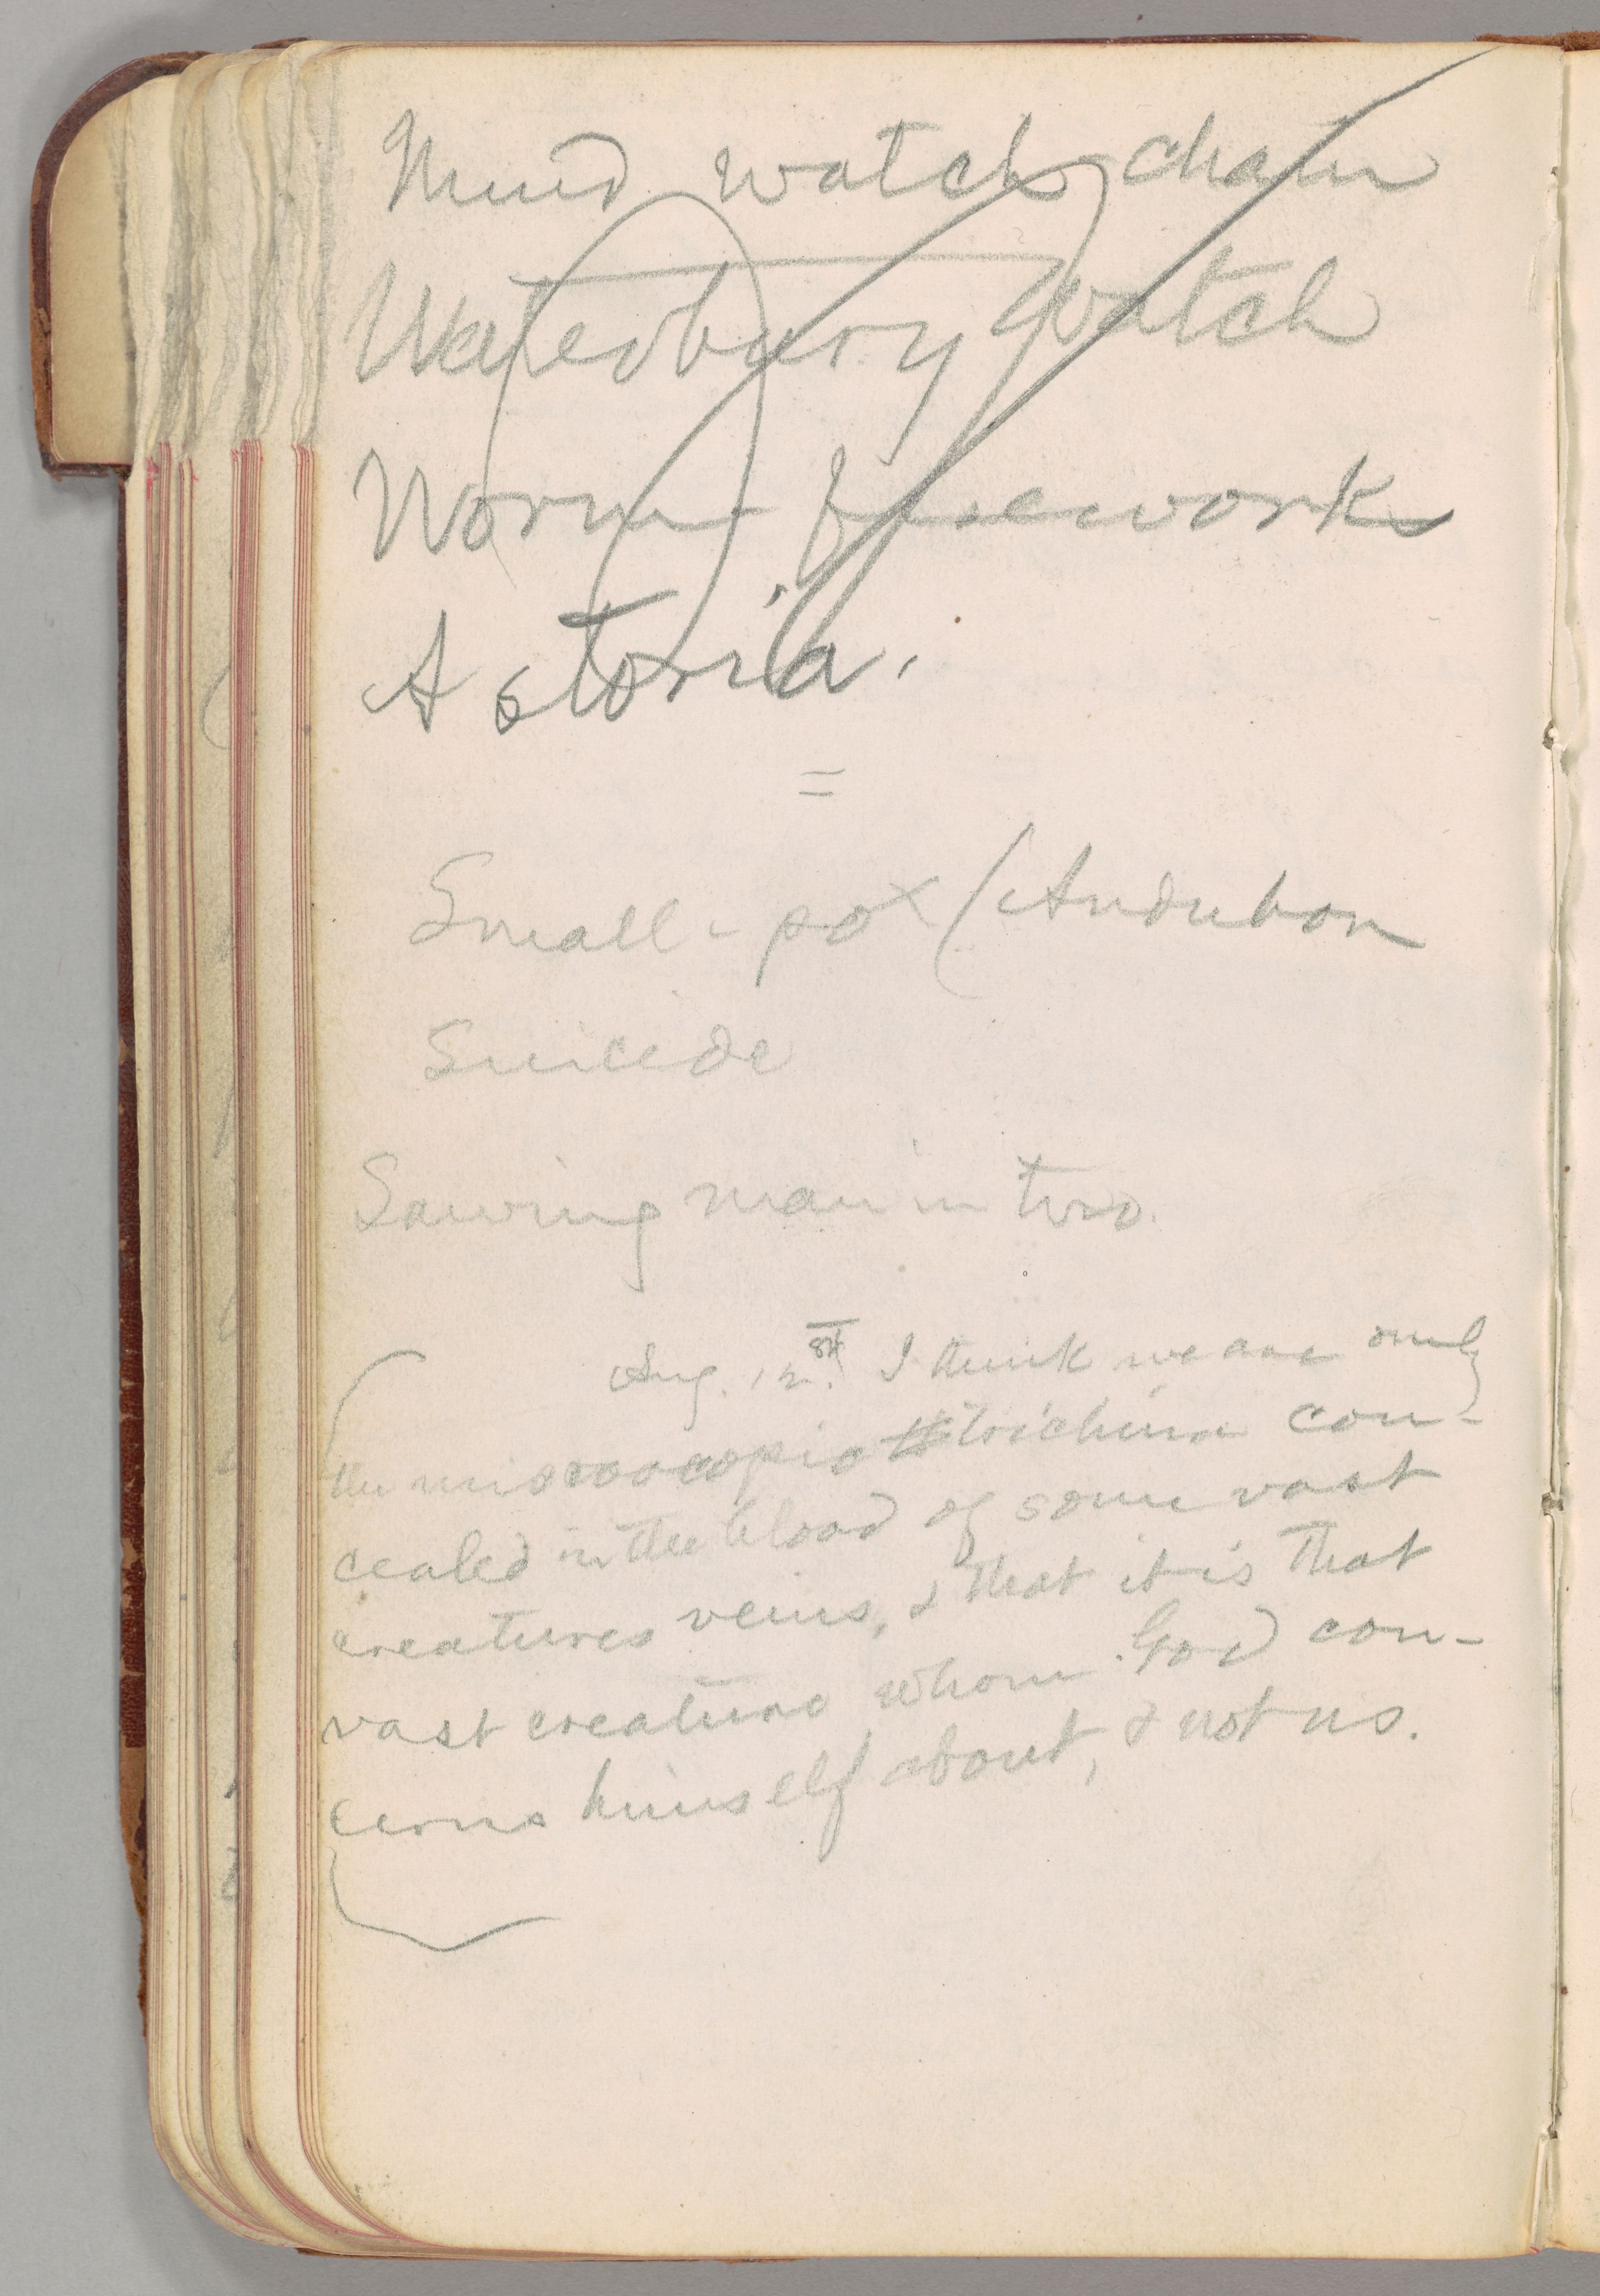 Mud watch chain
Waterbury Watch
Worm fireworks
Astoria.
=
Small-pox (Audubon
Suicide
Sawing man in two.
Aug. 12. '84 I think we are only
the microscopic trichina con-
cealed in the blood of some vast
creatures veins, & that it is that
vast creature whom God con-
cerns himself about, & not us.